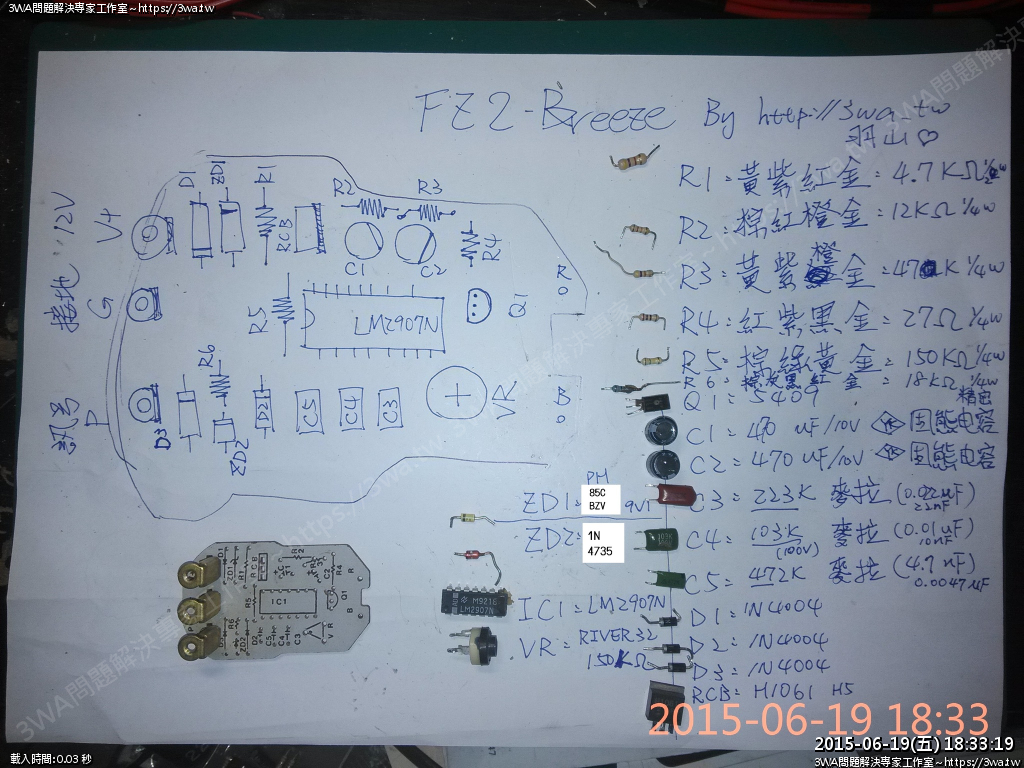 3WA問題解決專家工作室~https://3wa.tw
3WA問題解決專家工作室~https://3wa.tw
FZ2-Breeze By http://3wa.tw
羽山♡
接地:12V
V+
G
訊号
P
D1
ZD1
R1
RCB
R2
R3
C1
C2
R4
R5
LM2907N
Q1
R
B
D3
R6
ZD2
D2
C5
C4
C3
VR
R1=黃紫紅金=4.7KΩ 1/2w
R2=棕紅橙金=12KΩ 1/4w
R3=黃紫橙金=47K 1/4w
R4=紅紫黑金=27Ω 1/4w
R5=棕綠黃金=150KΩ 1/4w
R6=棕灰黑紅金=18KΩ 1/4w
精密
Q1=5409
C1=470 uF/10V 固態电容
C2=470uF/10V 固態电容
C3=223K 麥拉(0.022uF)
22nF
C4=103K 麥拉(0.01uF)
(100V) 10nF
C5=472K 麥拉(4.7nF)
0.0047uF
D1=1N4004
D2=1N4004
D3=1N4004
RCB=H1061 H5
PH
ZD1=85C
BZV
9V1
ZD2=1N
4735
IC1=LM2907N
VR=RIVER32
150KΩ
M921E
LM2907N
D1
ZD1
R1
RCB
R2
R3
C2
R4
R5
IC1
Q1
R
B
R6
ZD2
D2
C5
C4
C3
VR
2015-06-19 18:33
2015-06-19(五) 18:33:19
載入時間:0.03 秒
3WA問題解決專家工作室~https://3wa.tw